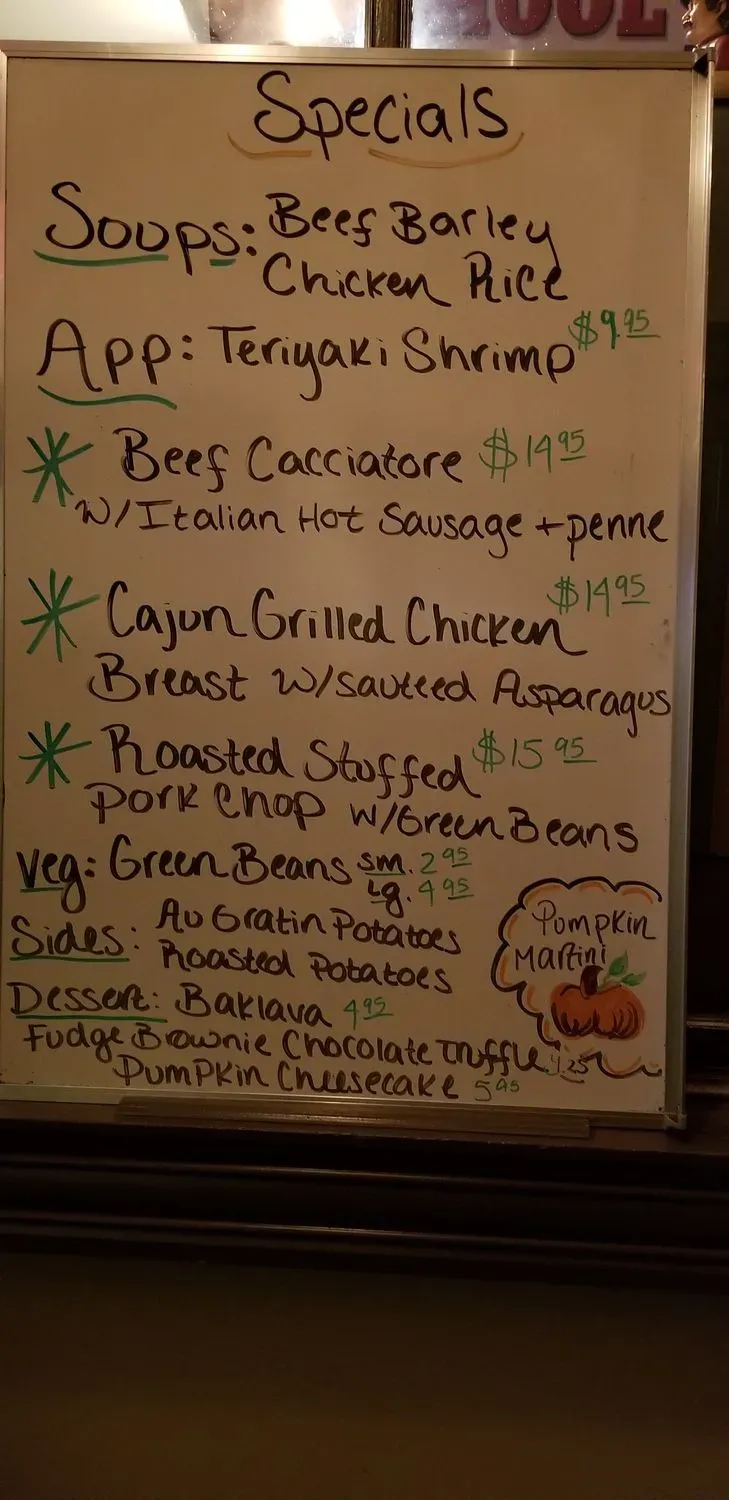 Specials
Soups: Beef Barley
Chicken Rice
App: Teriyaki Shrimp $9.95
Beef Cacciatore $14.95
W/Italian Hot Sausage + penne
Cajun Grilled Chicken $14.95
Breast w/sauteed Asparagus
Roasted Stuffed $15.95
Pork Chop w/Green Beans
Veg: Green Beans sm. 2.95
Lg. 4.95
Sides: Au Gratin Potatoes
Roasted Potatoes
Pumpkin
Martini
Dessert: Baklava 4.95
Fudge Brownie Chocolate Truffle 4.25
Pumpkin Cheesecake 5.95